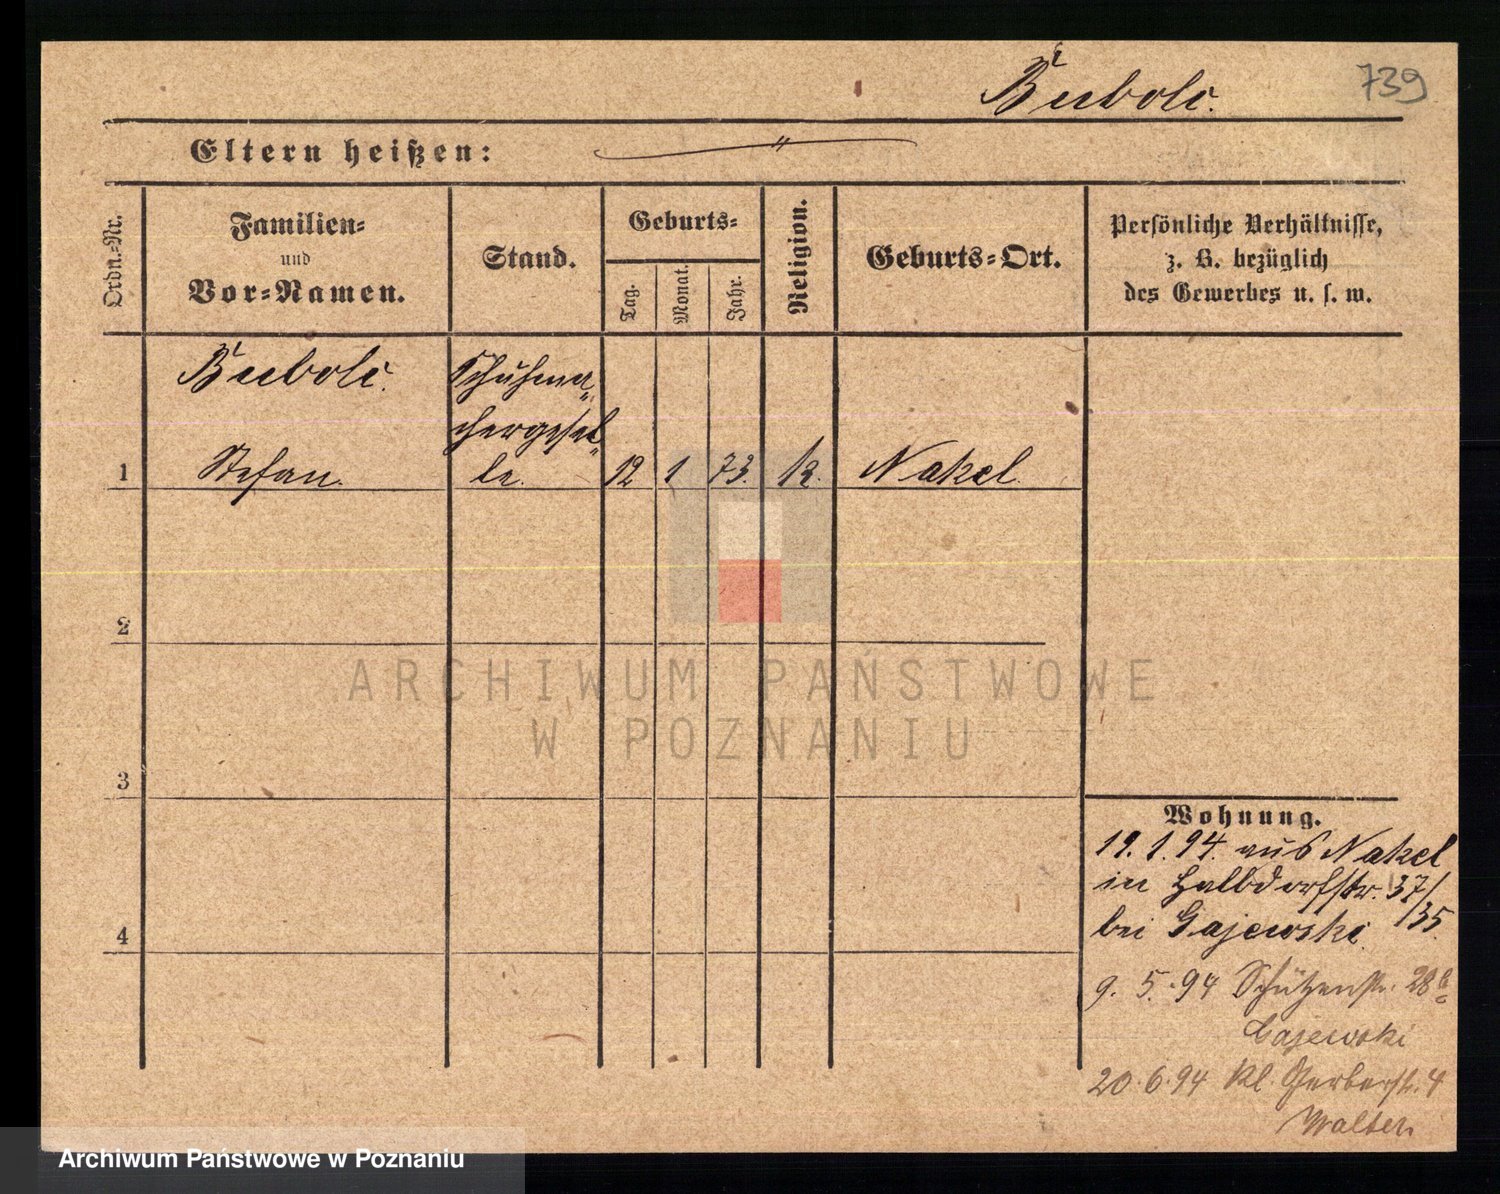 Bubolc.
739
Eltern heißen:
Ordn.-Nr.
Familien-
und
Vor-Namen.
Stand.
Geburts-
Tag.
Monat.
Jahr.
Religion.
Geburts-Ort.
Persönliche Verhältnisse,
z. B. bezüglich
des Gewerbes u. s. w.
Bubolc.
Schuhma-
chergesel-
1 Stefan. le. 12 1 73. k. Nakel.
2
3
4
Wohnung.
19. 1. 94. aus Nakel
in Halbdorfstr. 37/35.
bei Gajewski.
9. 5. 94 Schützenstr. 28a
Gajewski
20. 6. 94 Kl. Gerberstr. 4
Walter
ARCHIWUM PAŃSTWOWE
W POZNANIU
Archiwum Państwowe w Poznaniu